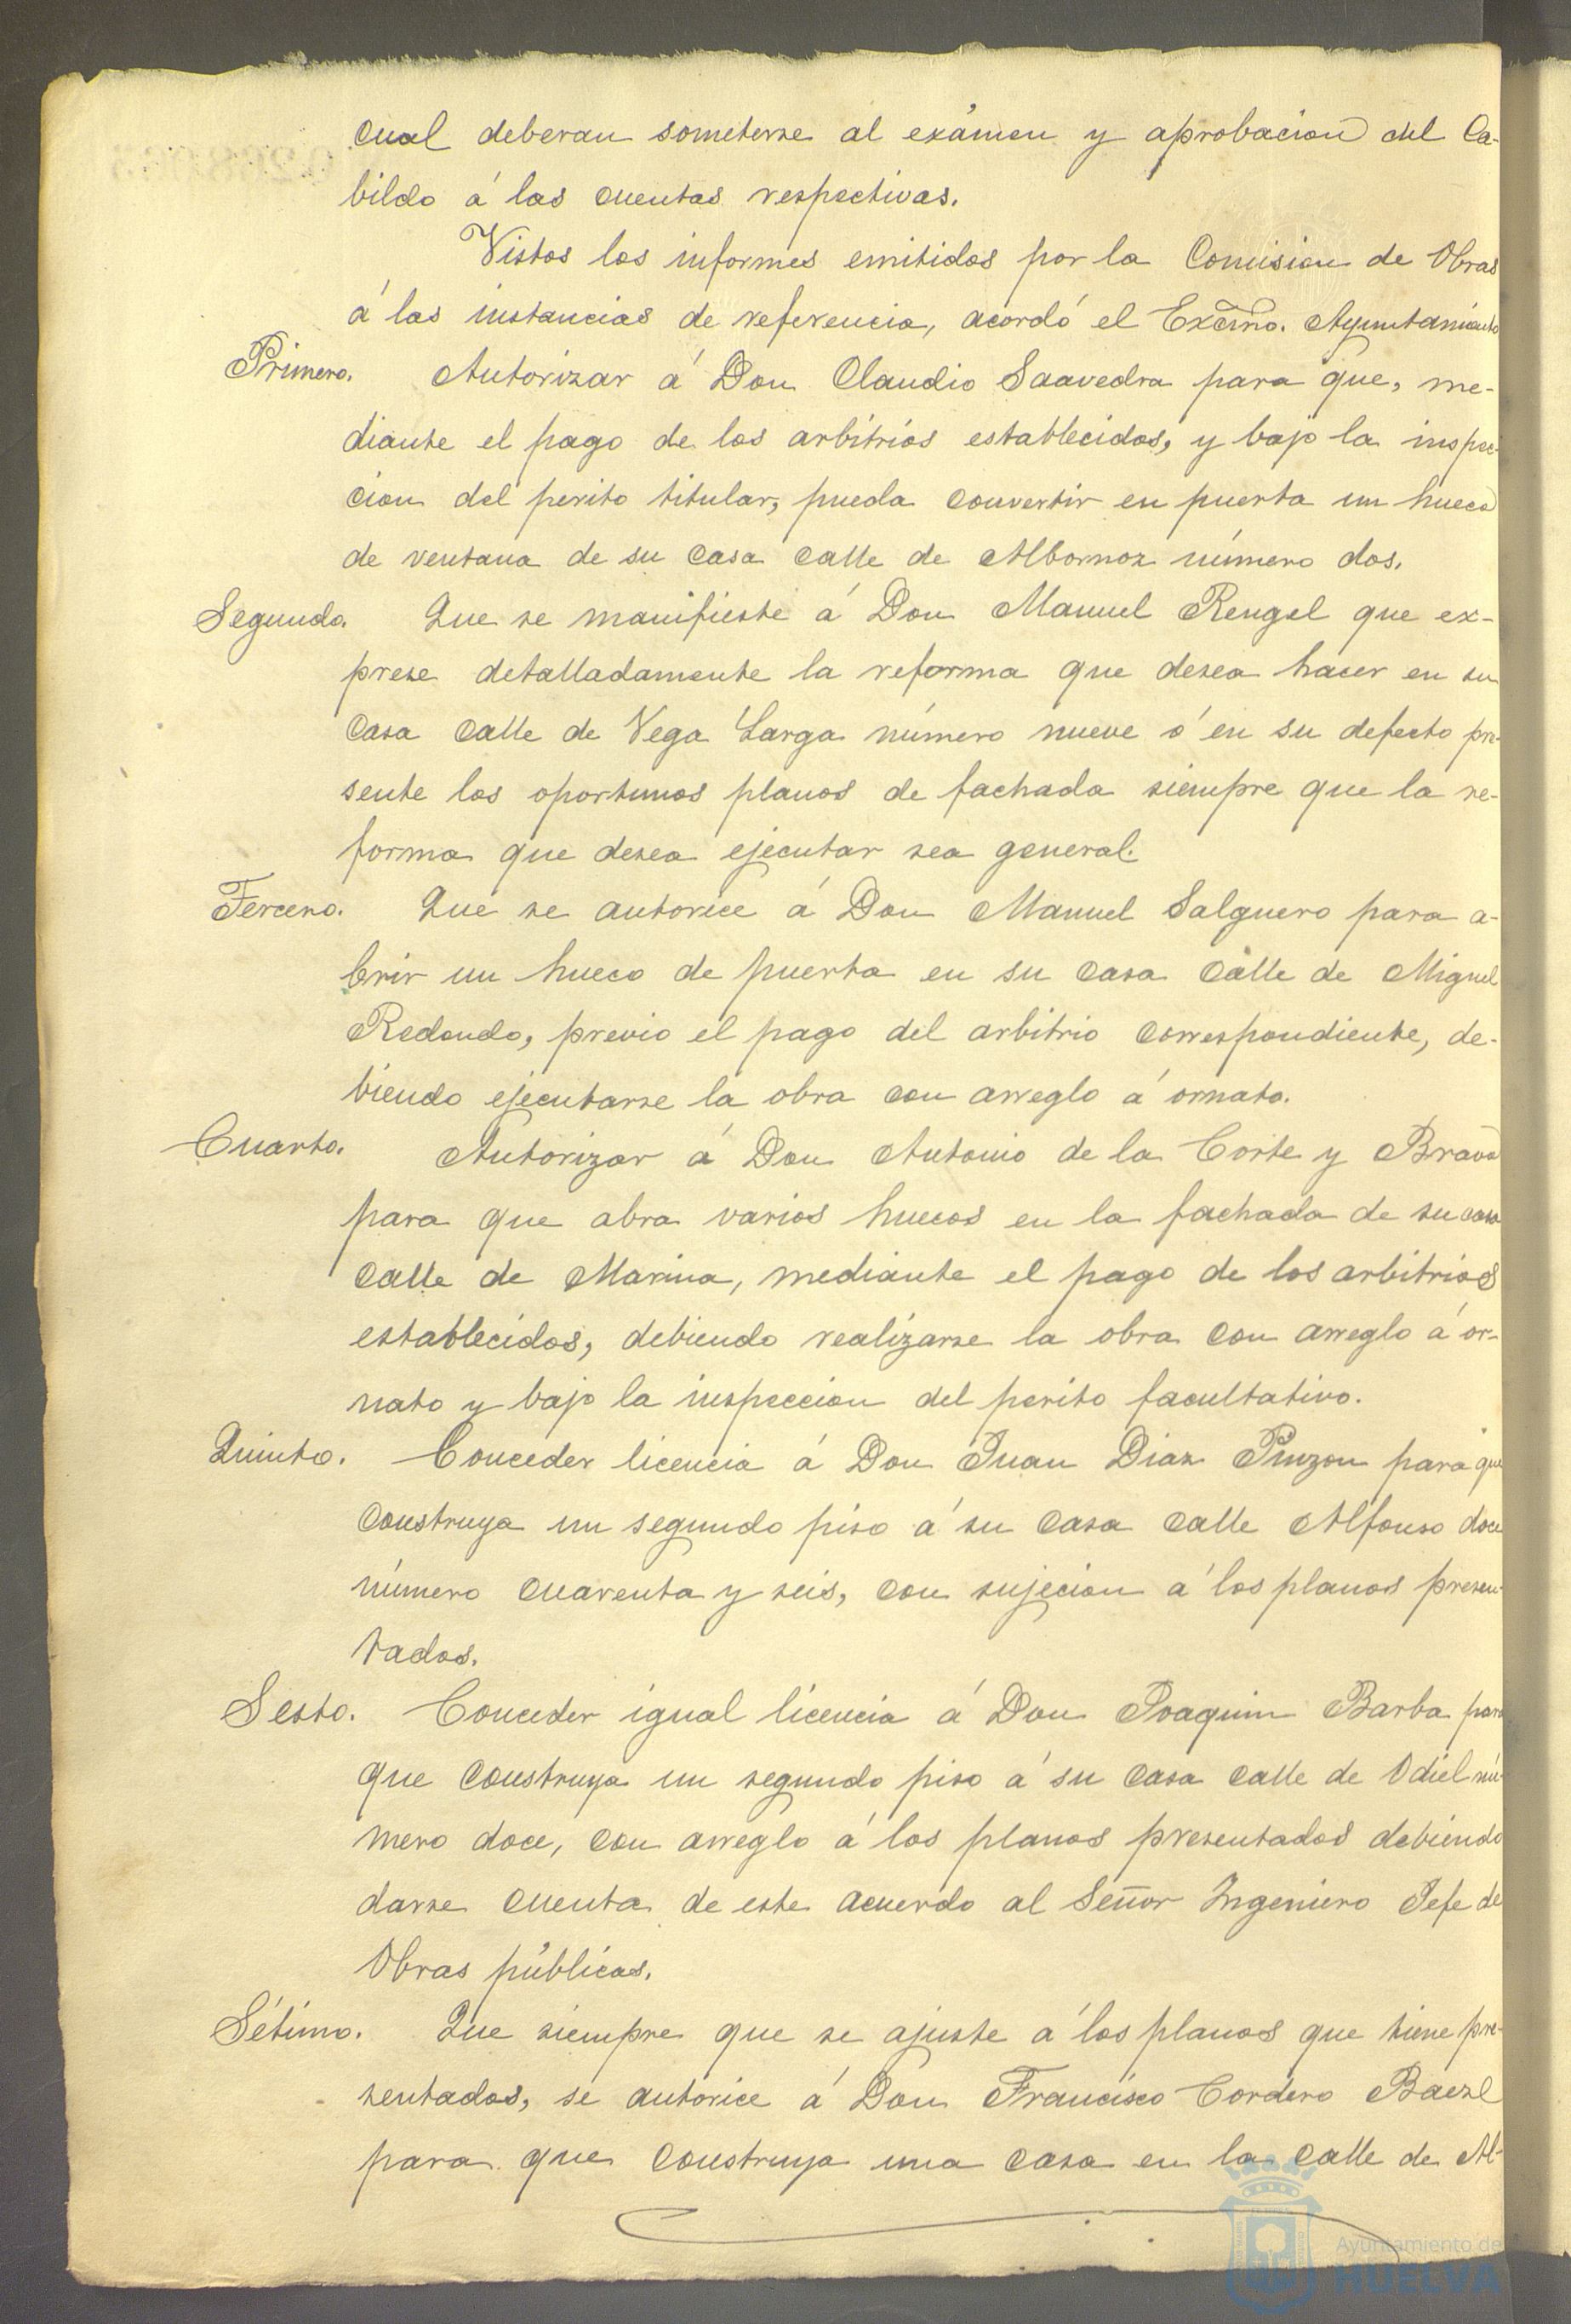 cual deberan someterse al exámen y aprobacion del Ca-
bildo á las cuentas respectivas.
Vistos los informes emitidos por la Comision de Obras
á las instancias de referencia, acordó el Excmo. Ayuntamiento
Primero. Autorizar á Don Claudio Saavedra para que, me-
diante el pago de los arbitrios establecidos, y bajo la inspec-
cion del perito titular, pueda convertir en puerta un hueco
de ventana de su casa calle de Albornoz número dos.
Segundo. Que se manifieste á Don Manuel Rengel que ex-
prese detalladamente la reforma que desea hacer en su
casa calle de Vega Larga número nueve ó en su defecto pre-
sente los oportunos planos de fachada siempre que la re-
forma que desea ejecutar sea general.
Tercero. Que se autorice á Don Manuel Salguero para a-
brir un hueco de puerta en su casa calle de Miguel
Redondo, previo el pago del arbitrio correspondiente, de-
biendo ejecutarse la obra con arreglo á ornato.
Cuarto. Autorizar á Don Antonio de la Corte y Bravo
para que abra varios huecos en la fachada de su casa
calle de Marina, mediante el pago de los arbitrios
establecidos, debiendo realizarse la obra con arreglo á or-
nato y bajo la inspeccion del perito facultativo.
Quinto. Conceder licencia á Don Juan Diaz Pinzon para que
construya un segundo piso á su casa calle Alfonso doce
número cuarenta y seis, con sujecion á los planos presen-
tados.
Sesto. Conceder igual licencia á Don Joaquin Barba para
que construya un segundo piso á su casa calle de Odiel nú-
mero doce, con arreglo á los planos presentados debiendo
darse cuenta de este acuerdo al Señor Ingeniero Jefe de
Obras públicas.
Sétimo. Que siempre que se ajuste á los planos que tiene pre-
sentados, se autorice á Don Francisco Cordero Baezl
para que construya una casa en la calle de Al-
Ayuntamiento de
HUELVA